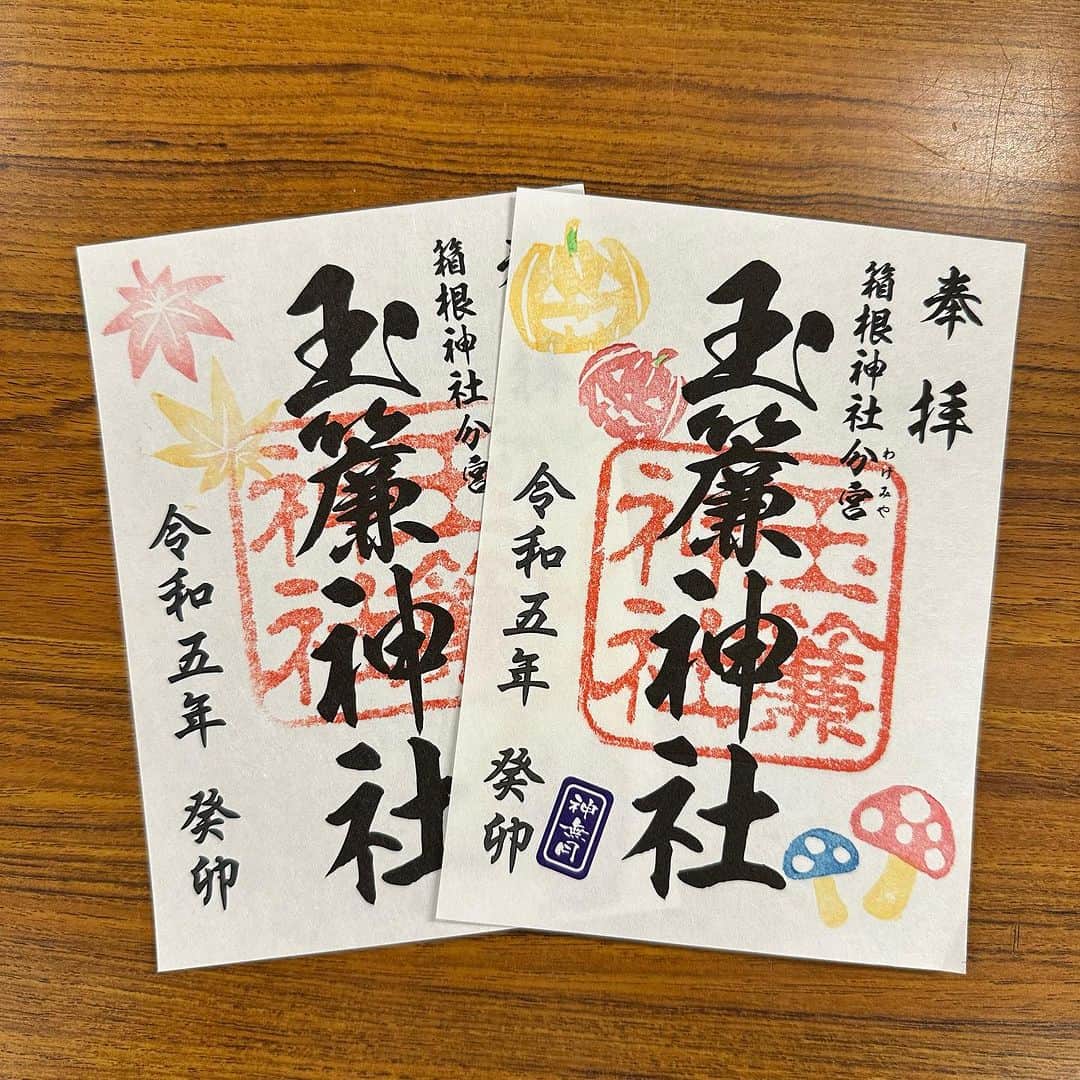 奉拝
箱根神社分宮
わけみや
玉簾神社
玉簾神社
令和五年 癸卯
神無月
箱根神社分宮
玉簾神社
令和五年 癸卯